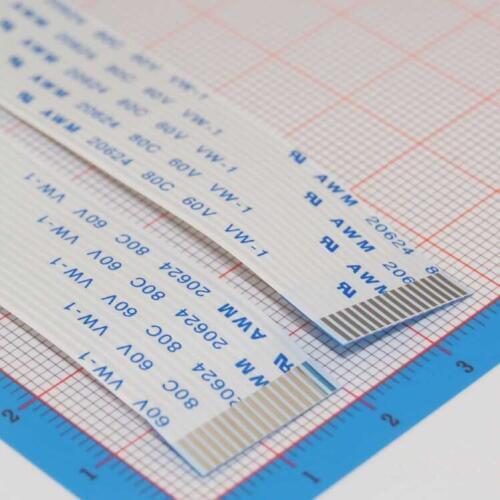 20624 80C 60V VW-1
AWM 20624 80C 60V VW-1
AWM 20624 80C 60V VW-1
AWM 20624 80C 60V VW-1
AWM 20624 8
AWM 206
AWM
60V VW-1
80C 60V VW-1
20624 80C 60V VW-1
AWM 20624 80C 60V VW-1
AWM 20624 80C 60V VW-1
2
1
1
2
3